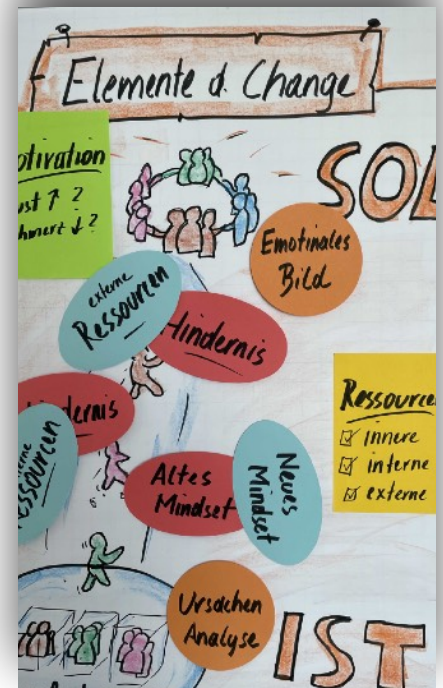 Elemente d. Change
otivation
ust ↑ ?
chmerz ↓ ?
SOL
Emotinales
Bild
externe
Ressourcen
Hindernis
Ressource
☑ innere
☑ interne
☑ externe
dernis
erne
essourcen
Altes
Mindset
Neues
Mindset
Ursachen
Analyse
IST